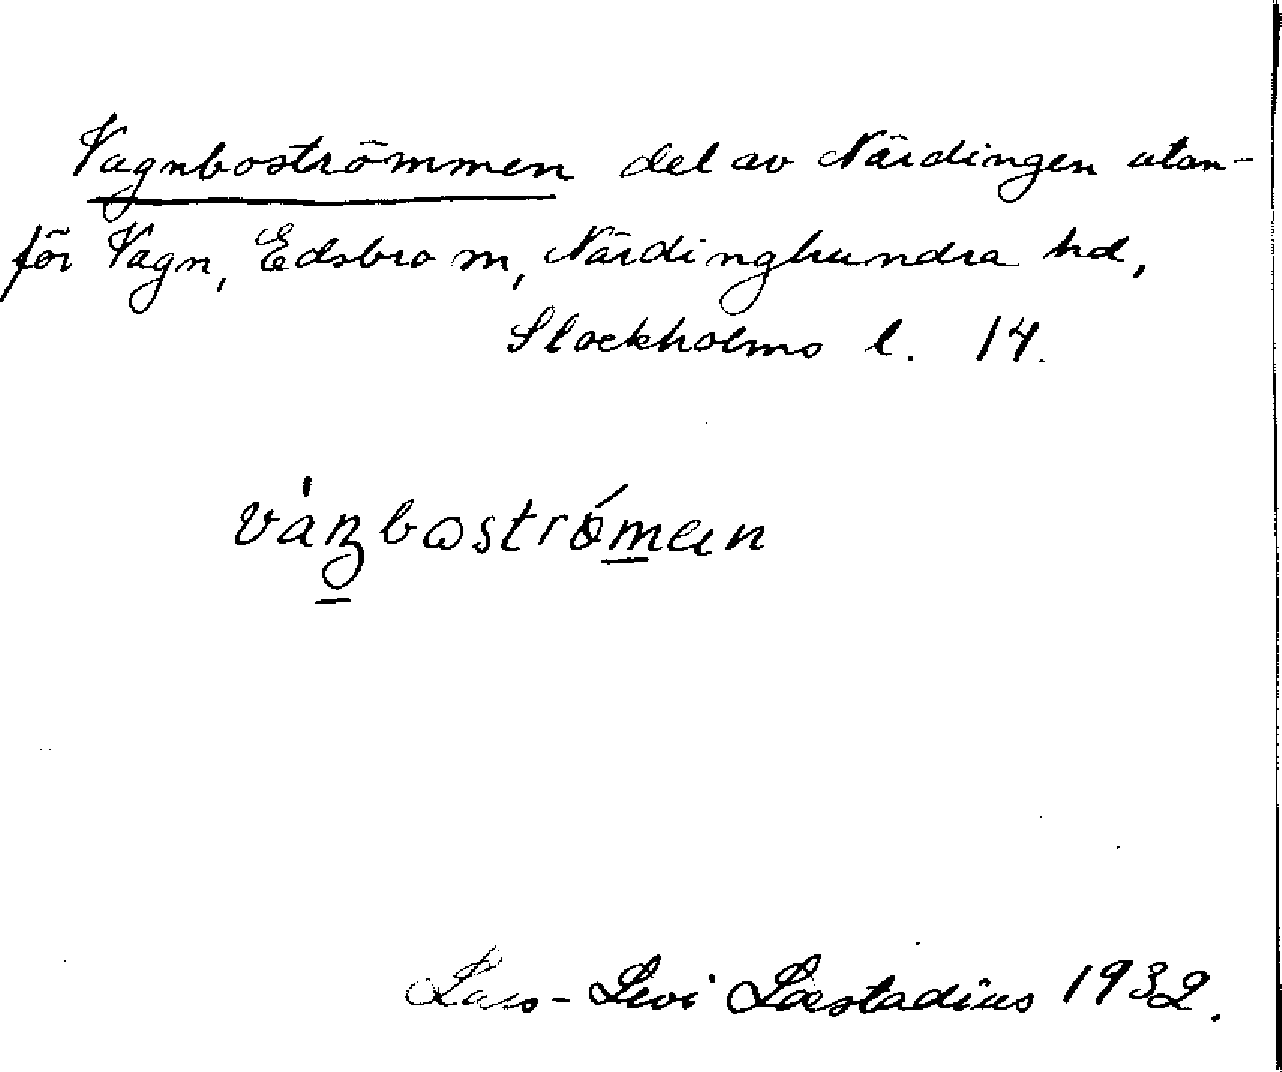 Vagnboströmmen del av Närdingen utan-
för Vagn, Edsbro sn, Närdinghundra hd,
Stockholms l. 14.
våŋboströmɘn
Lars-Levi Læstadius 1932.